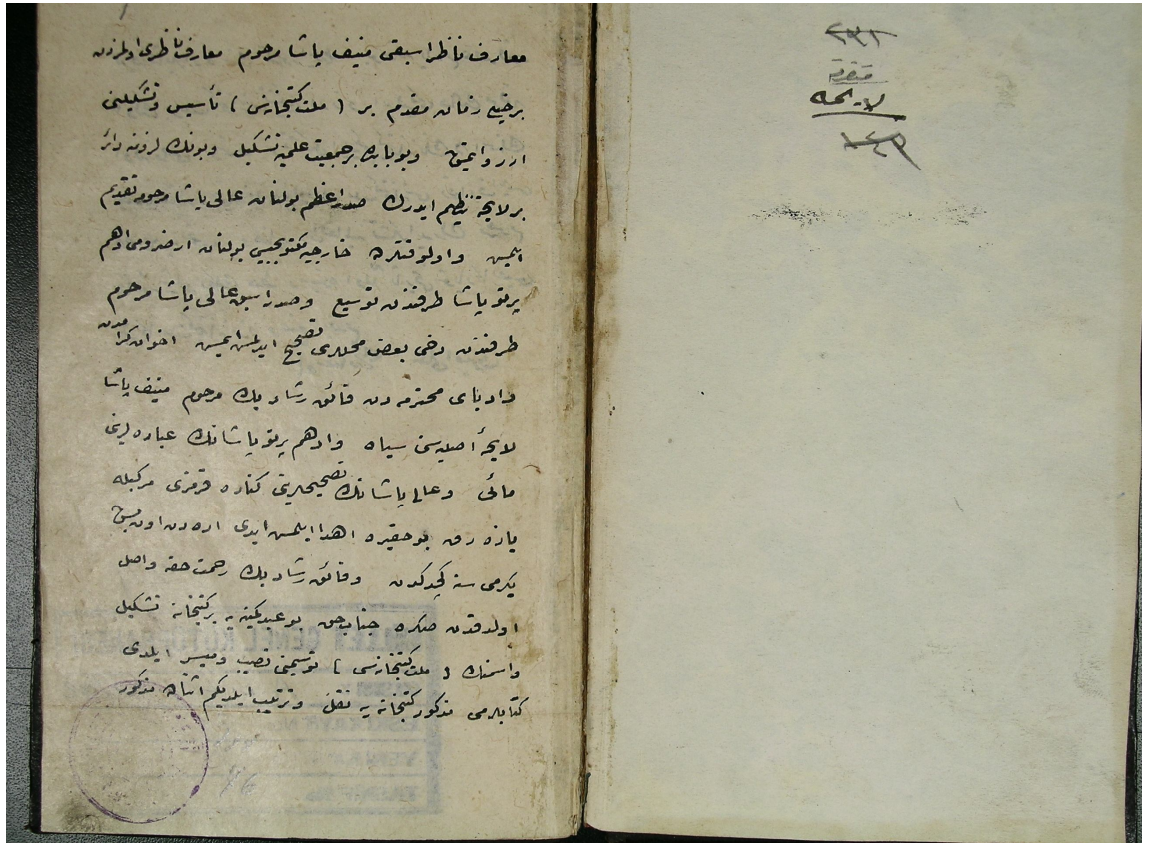 ٢٣٢
متفرقه
لايحه
معارف ناظر اسبقی منیف پاشا مرحوم معارف ناظری اولمزدن
برخیلی زمان مقدم بر ( ملت کتبخانه‌سی ) تأسیس وتشکیلنی
آرزو ایتمش وبوبابده برجمعیت علمیه تشکیل وبونك لزومنه دائر
برلایحه تنظیم ایدرك صدراعظم بولنان عالی پاشا مرحومه تقدیم
ایلمش واولوقتلرده خارجیه مکتوبجیسی بولنان ارضرومی ادهم
پرتو پاشا طرفندن توسیع وصدر اسبق عالی پاشا مرحوم
طرفندن دخی بعض محللری تصحیح ایدلمش ایمش اخوان کرامدن
وادبای محترمه دن فائق رشاد بك مرحوم منیف پاشا
لایحۀ اصلیه‌سنی سیاه وادهم پرتو پاشانك عباره لرینی
مائی وعالی پاشانك تصحیحلرینی کناره قرمزی مرکبله
یازه رق بوحقیره اهدا ایلمش ایدی اره دن اون بش
یکرمی سنه کچدکدن وفائق رشاد بك رحمت حقه واصل
اولدقدن صکره جناب حق بو عبد کمینه یه برکتبخانه تشکیل
واسمنك ( ملت کتبخانه‌سی ) توسیمنی نصیب ومیسر ایلدی
کتابلرمی مذکور کتبخانه یه نقل وترتیب ایلدیکم اثناده مذکور